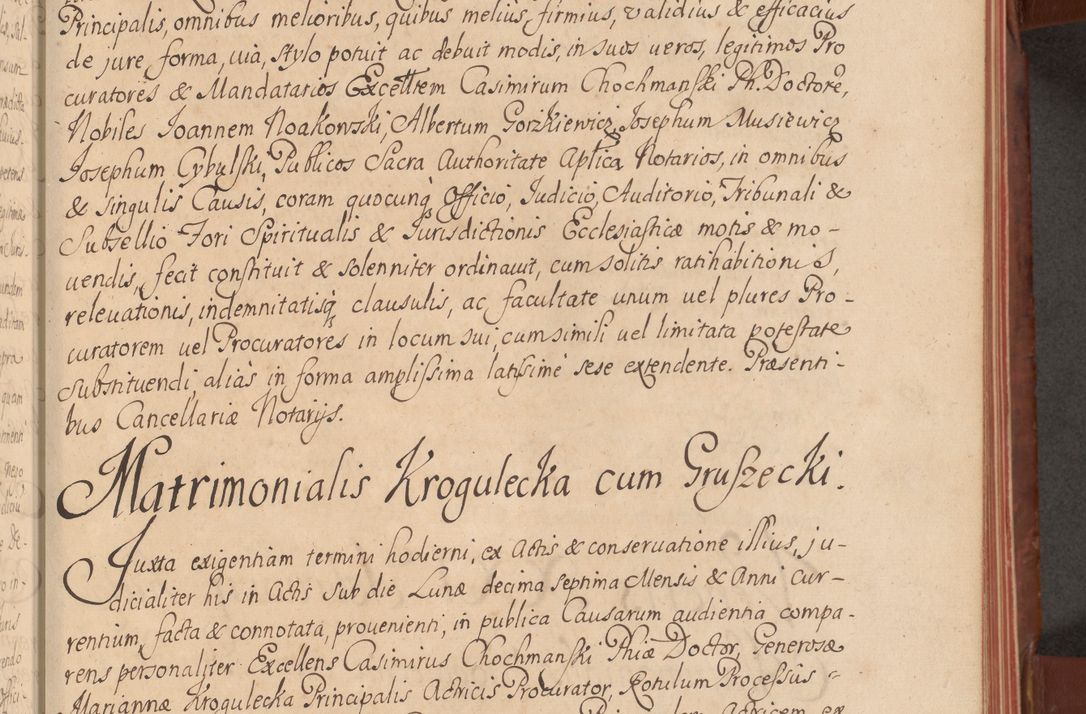 Principalis, omnibus melioribus, quibus melius, firmius, validius & efficacius
de jure, forma, uia, stylo potuit ac debuit modis, in suos ueros, legitimos Pro
curatores & Mandatarios Excelltem Casimirum Chochmanski Ph. Doctorē,
Nobiles Joannem Noakowski, Albertum Gorzkiewicz, Josephum Musiewicz
Josephum Cybulski, Publicos Sacra Authoritate Aplica Notarios, in omnibus
& singulis Causis, coram quocunq̨ Officio, Judicio, Auditorio, Tribunali &
Subsellio Fori Spiritualis & Jurisdictionis Ecclesiasticæ motis & mo-
uendis, fecit constituit & solenniter ordinauit, cum solitis ratihabitionis,
releuationis, indemnitatisq̨ clausulis, ac facultate unum uel plures Pro-
curatorem uel Procuratores in locum sui, cum simili uel limitata potestate
substituendi, aliàs in forma amplissima latissimè sese extendente. Præsenti-
bus Cancellariæ Notarijs.
Matrimonialis Krogulecka cum Gruszecki.
Juxta exigentiam termini hodierni, ex Actis & conseruatione illius, ju-
dicialiter his in Actis sub die Lunæ decima septima Mensis & Anni cur-
rentium, facta & connotata, prouenienti, in publica Causarum audientia compa-
rens personaliter Excellens Casimirus Chochmanski Phiæ Doctor, Generosæ
Mariannæ Krogulecka Principalis Actricis Procurator, Rotulum Processus